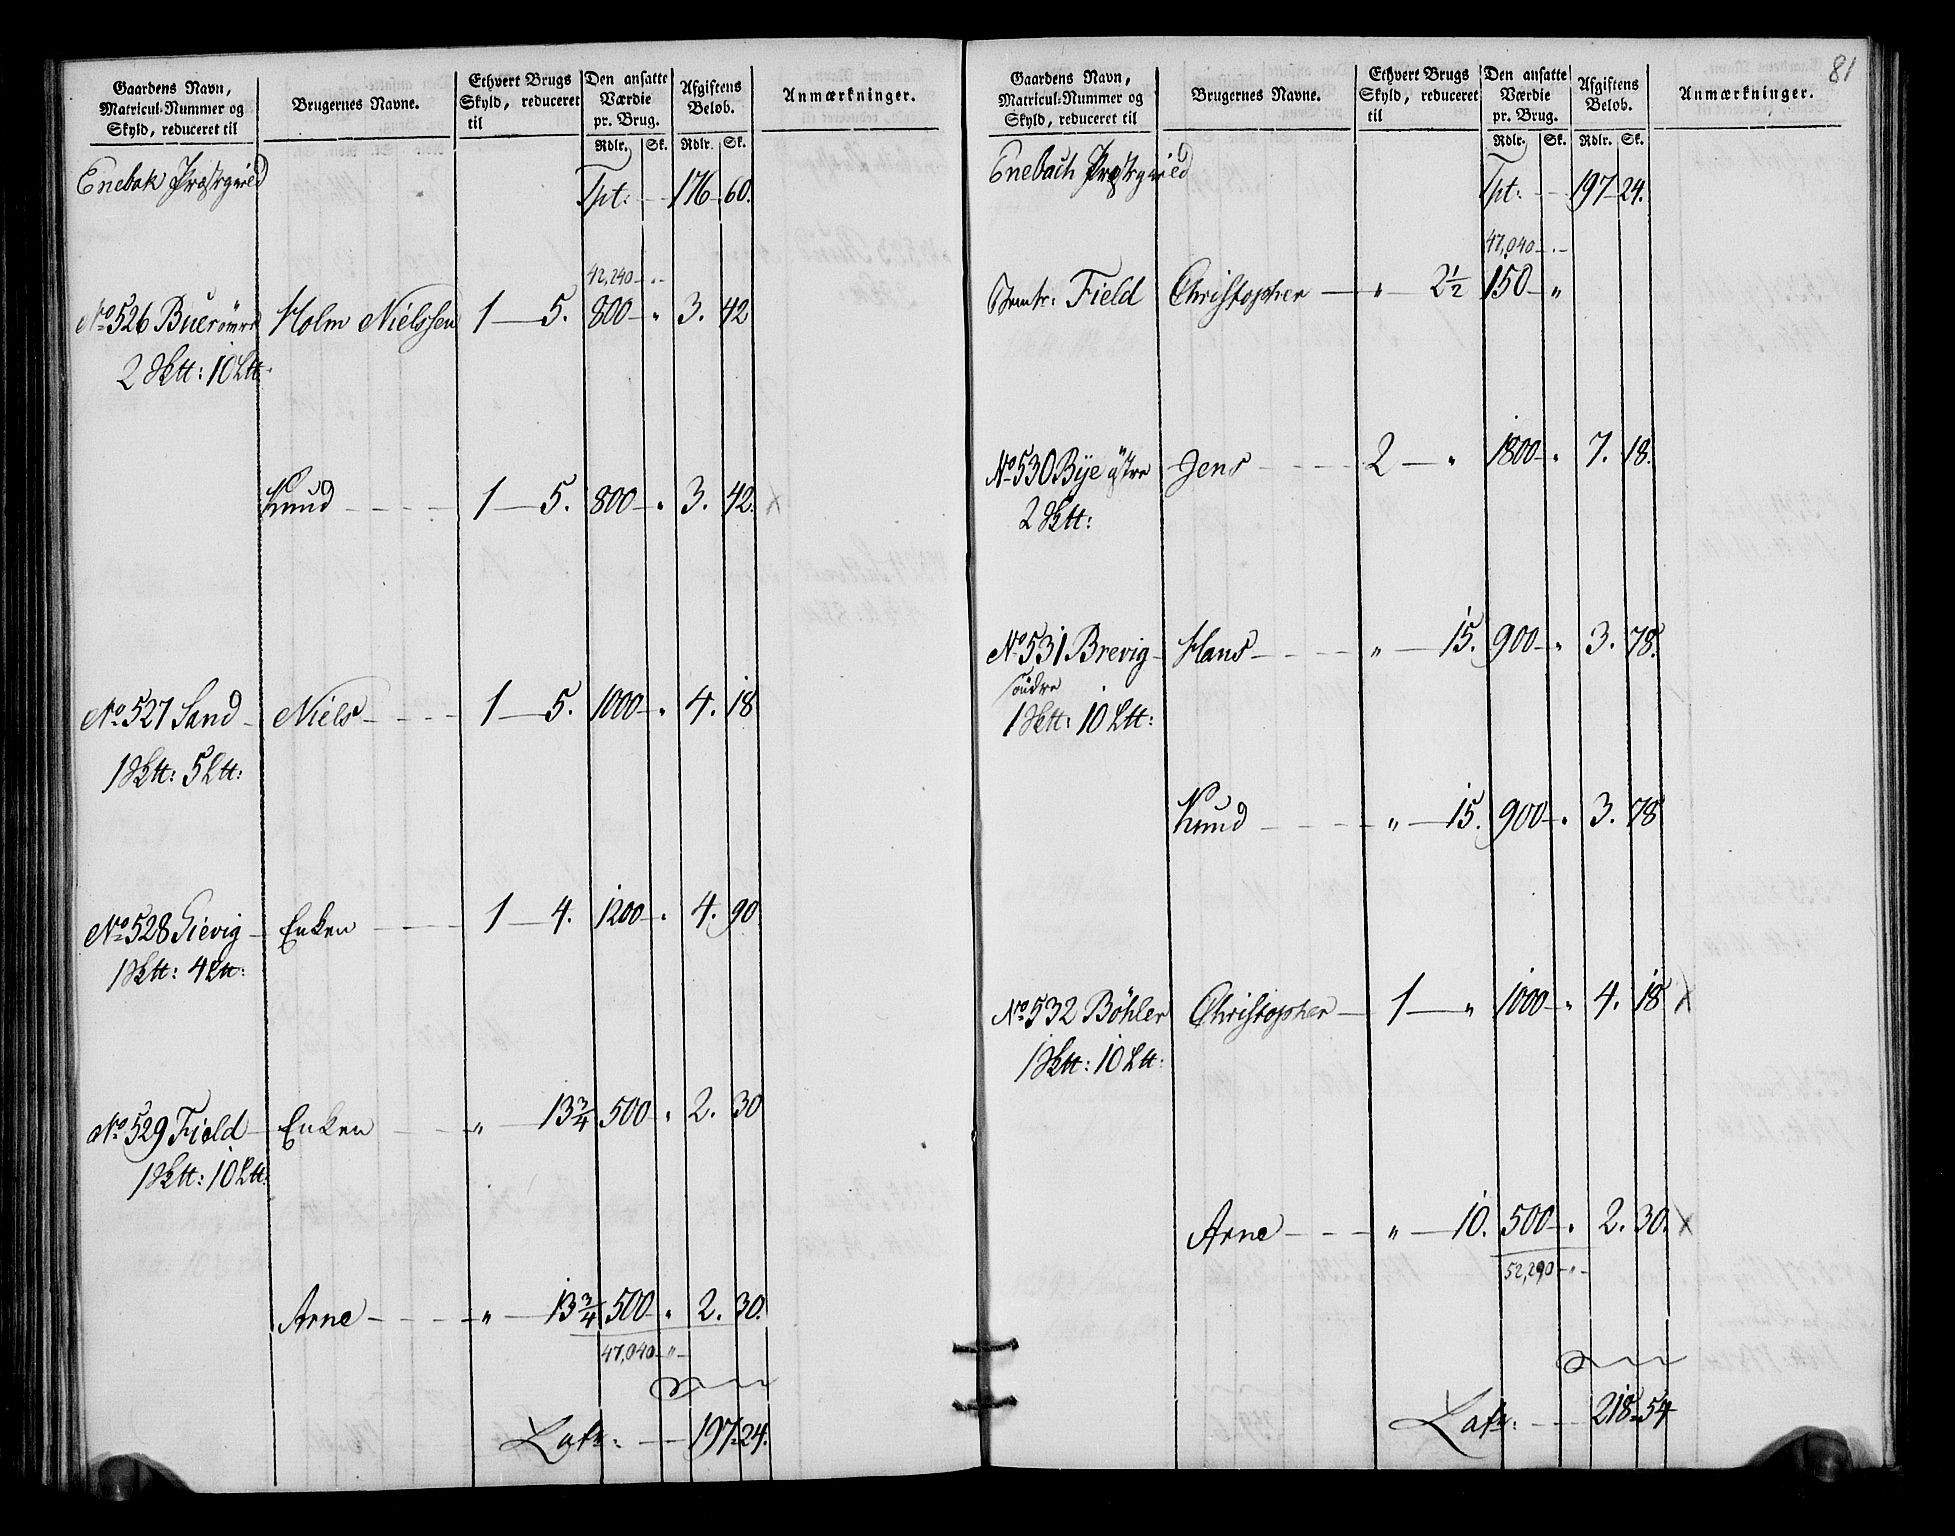 Gaardens Navn, Matricul-Nummer og Skyld, reduceret til
Brugernes Navne.
Ethvert Brugs Skyld, reduceret til
Den ansatte Værdie pr. Brug.
Afgiftens Beløb.
Anmærkninger.
Rdlr. Sk. Rdlr. Sk.
Enebak Præstgield Tpt: 176 60.
42,240
No 526 Buer Holm Nielssen 1 — 5. 800 „ 3. 42
2 Sktt: 10 Ltt.
Knud 1 — 5. 800 „ 3. 42. x
No 527 Sand Niels 1 — 5. 1000 „ 4. 18
1 Sktt: 5 Ltt:
No 528 Gievig Enken 1 — 4. 1200 „ 4. 90
1 Sktt: 4 Ltt:
No 529 Field Enken „ — 13 3/4 500 „ 2. 30
1 Sktt: 10 Ltt:
Arne „ — 13 3/4 500 „ 2. 30.
47,040 „
Latr: 197 24.
81
Gaardens Navn, Matricul-Nummer og Skyld, reduceret til
Brugernes Navne.
Ethvert Brugs Skyld, reduceret til
Den ansatte Værdie pr. Brug.
Afgiftens Beløb.
Anmærkninger.
Rdlr. Sk. Rdlr. Sk.
Enebach Præstgield Tpt: 197 24.
47,040
Field Christopher „ 2 1/2 150 „
No 530 Bye östre Jens 2 — „ 1800 „ 7. 18.
2 Sktt:
No 531 Brevig Hans „ — 15. 900 „ 3. 78.
söndre
1 Sktt: 10 Ltt:
Knud „ — 15. 900 „ 3. 78
No 532 Böhler Christopher 1 — „ 1000 „ 4. 18 x
1 Sktt: 10 Ltt:
Arne „ — 10. 500 „ 2. 30. x
52,290 „
Latr: 218 54